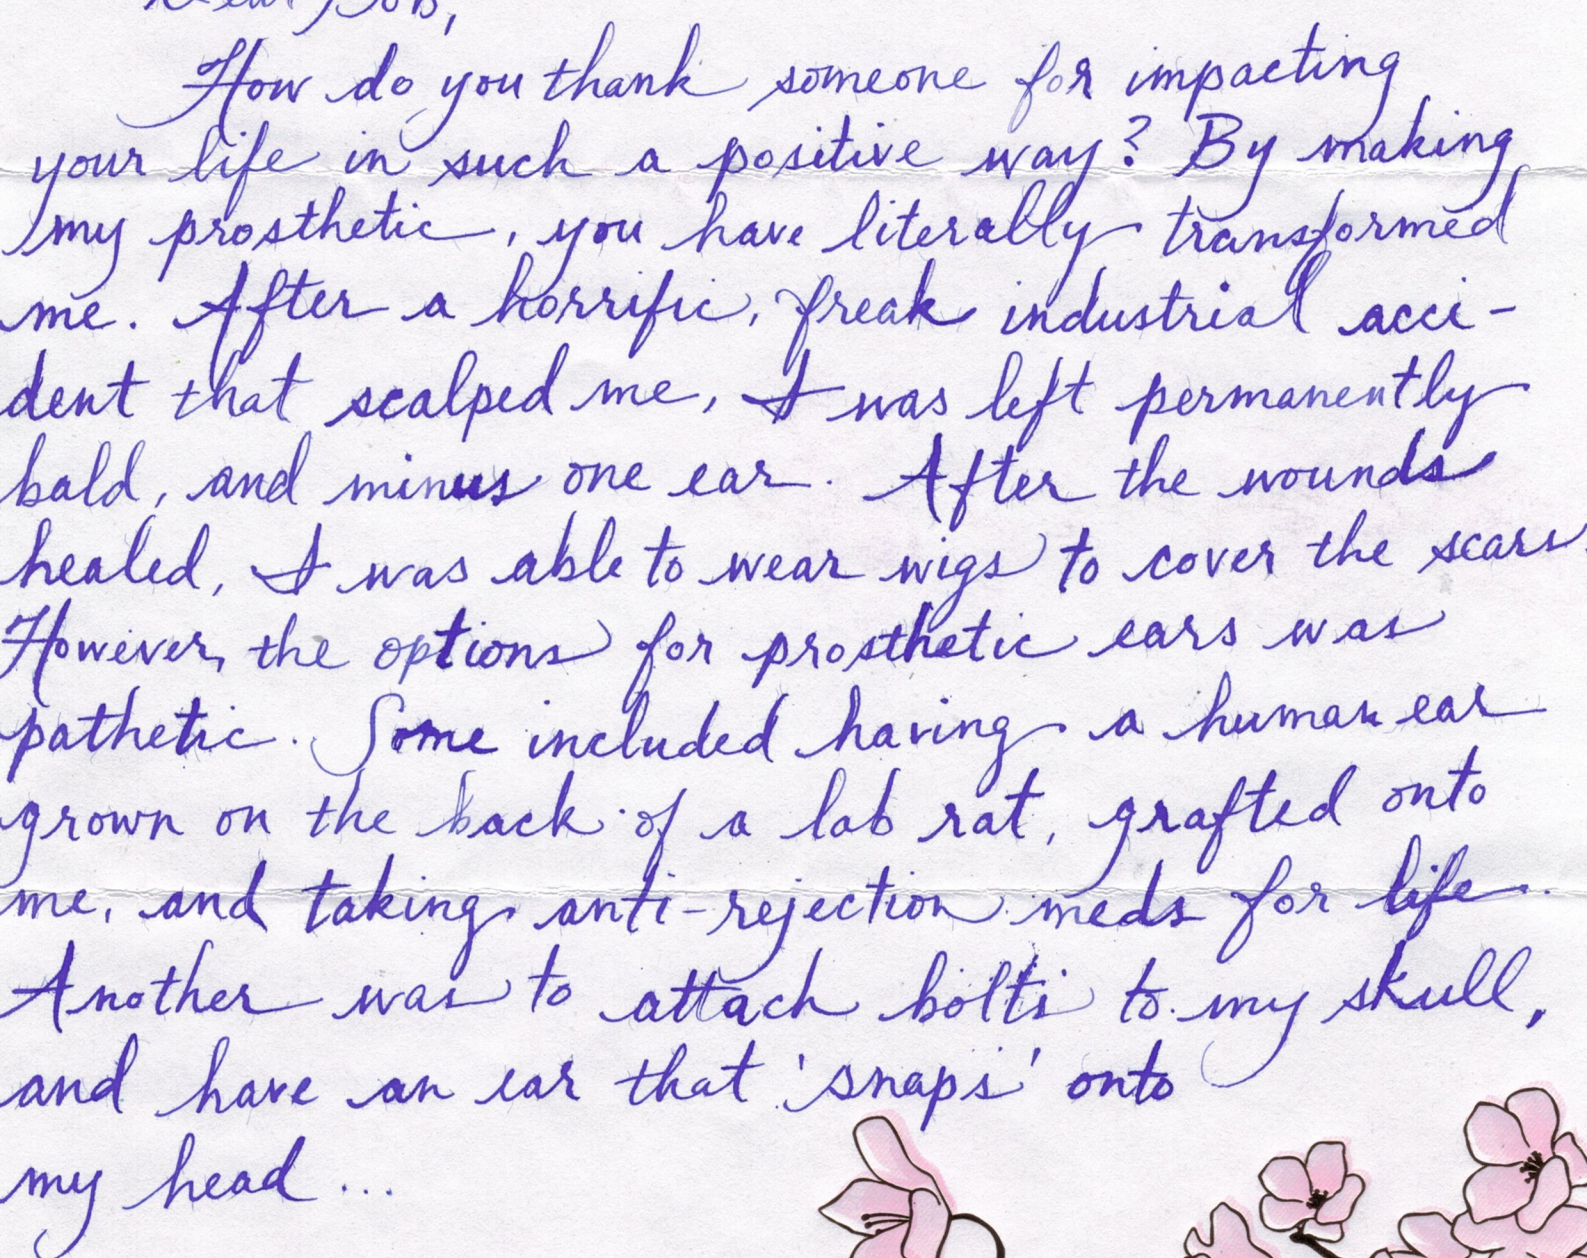 Dear Bob,
How do you thank someone for impacting
your life in such a positive way? By making
my prosthetic, you have literally transformed
me. After a horrific, freak industrial acci-
dent that scalped me, I was left permanently
bald, and minus one ear. After the wounds
healed, I was able to wear wigs to cover the scars.
However, the options for prosthetic ears was
pathetic. Some included having a human ear
grown on the back of a lab rat, grafted onto
me, and taking anti-rejection meds for life.
Another was to attach bolts to my skull,
and have an ear that 'snaps' onto
my head...